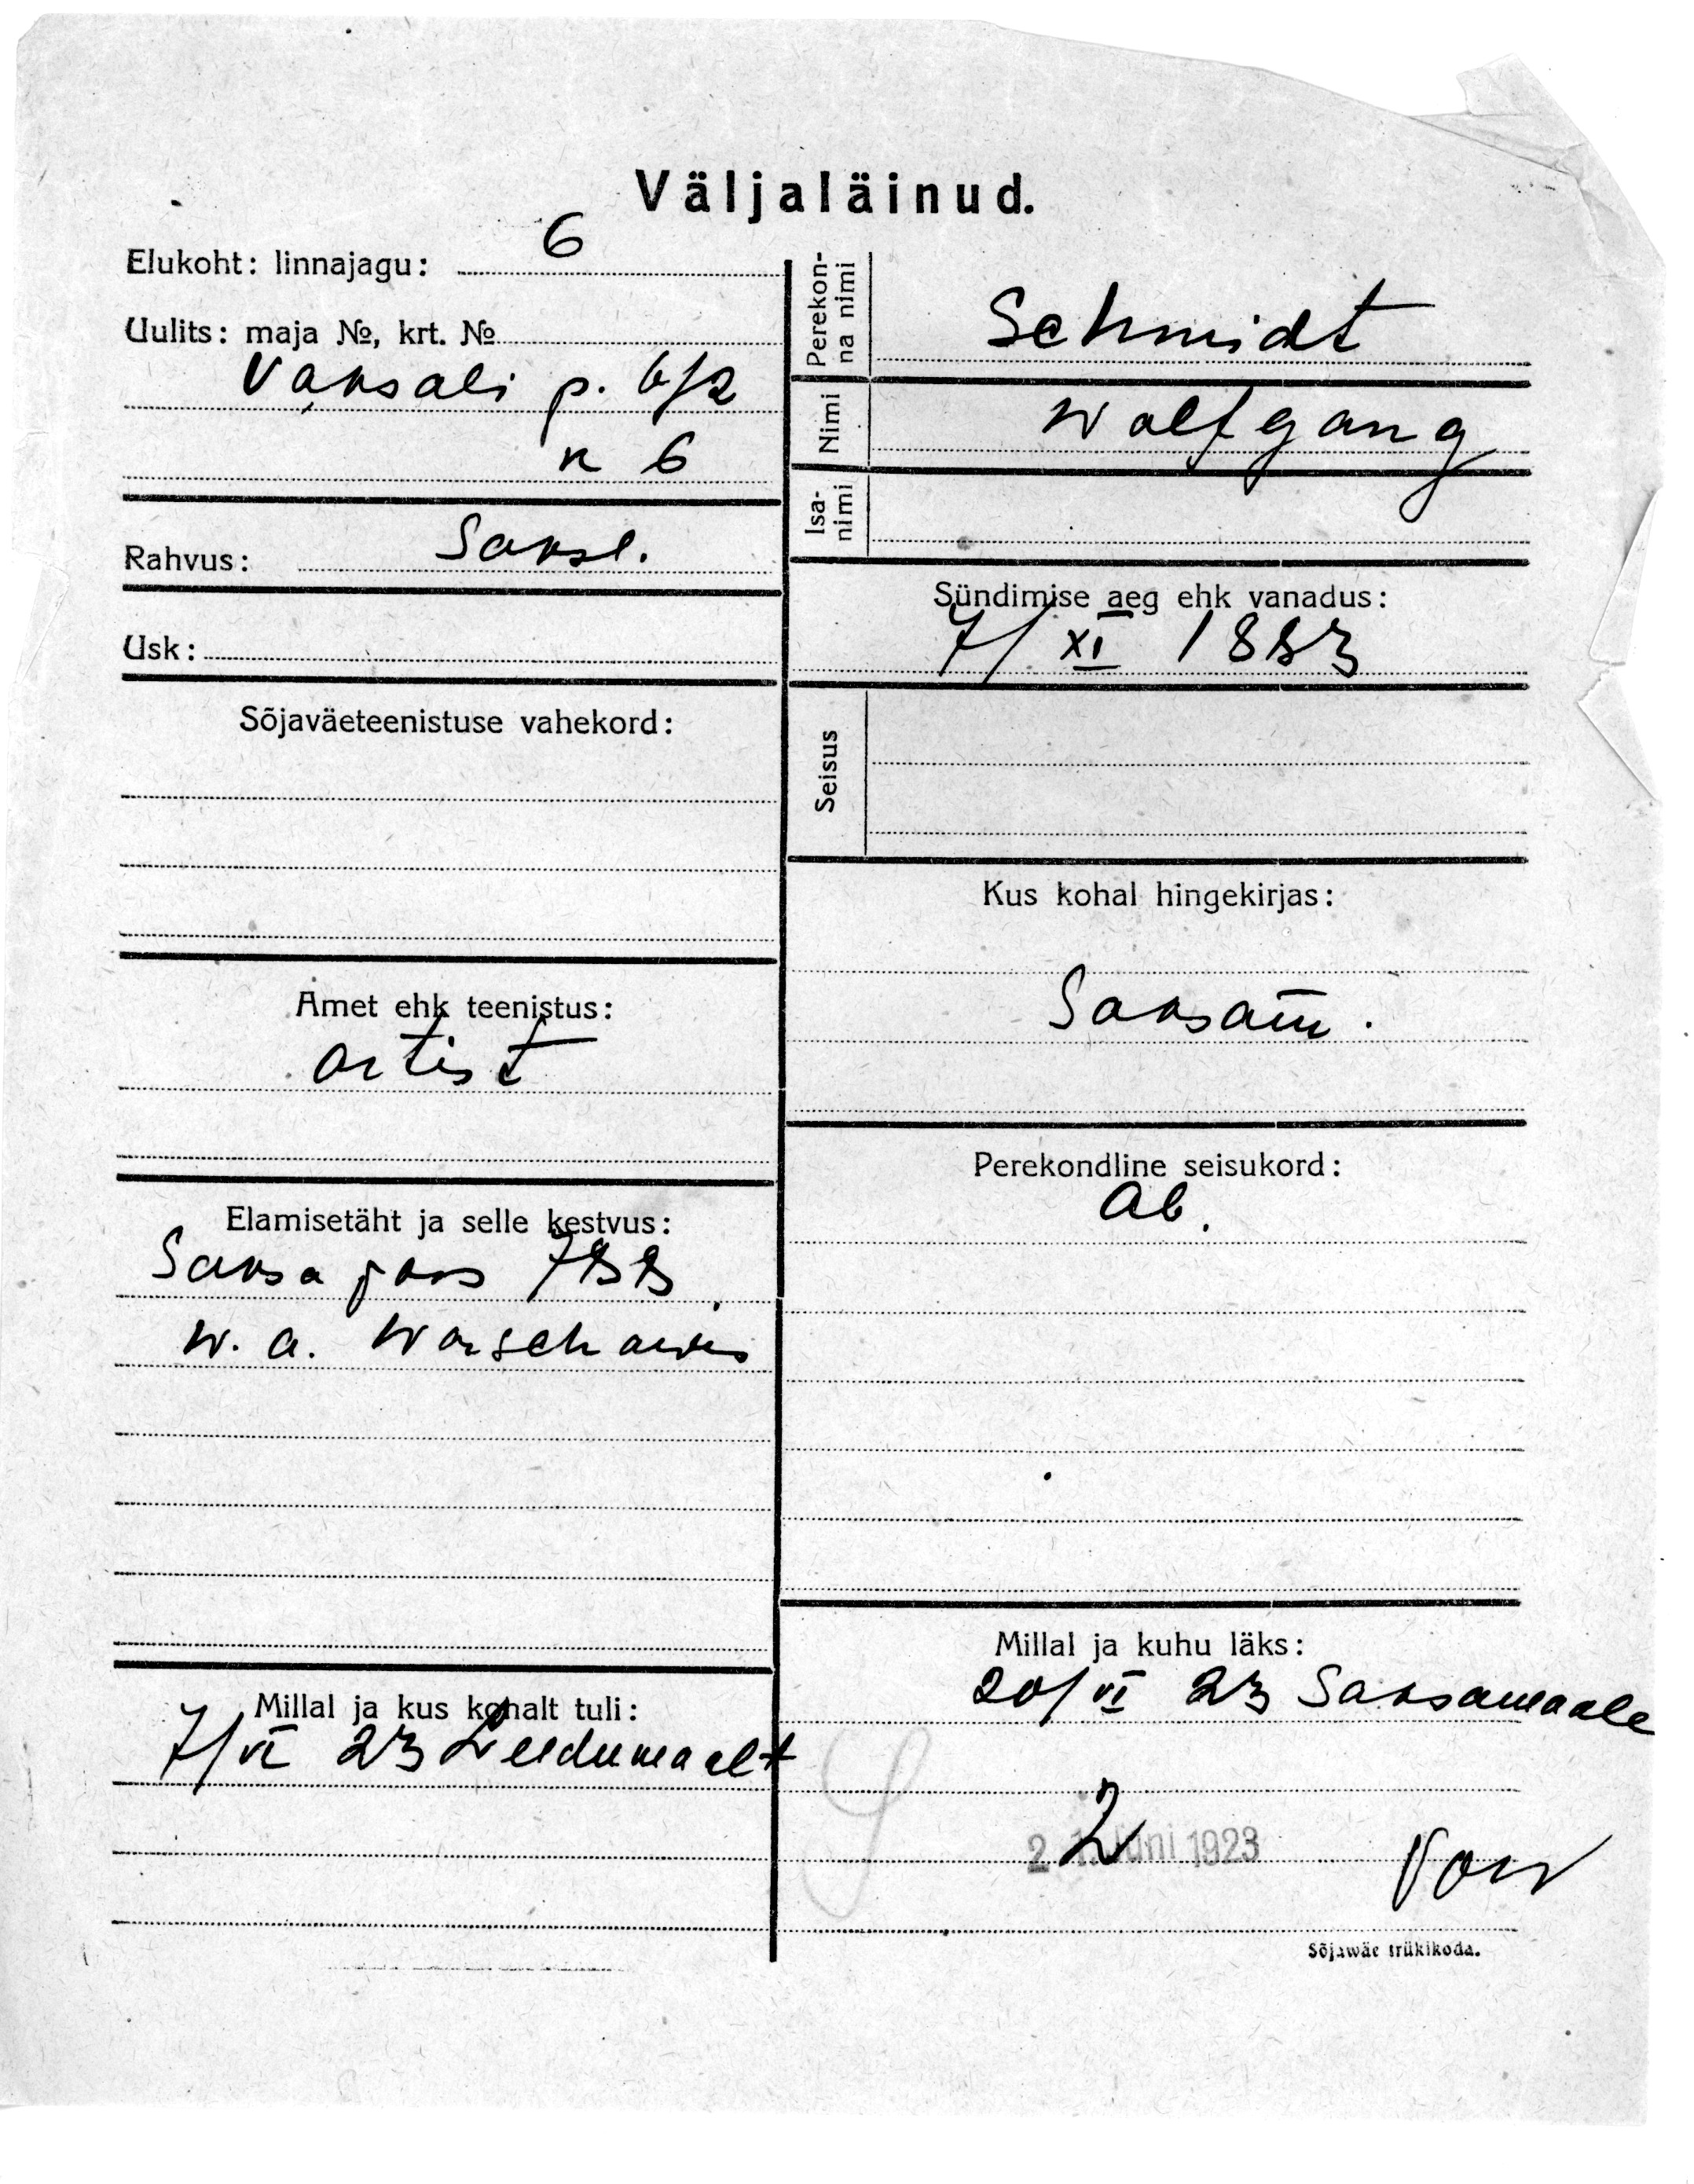 Väljaläinud.
Elukoht: linnajagu: 6
Uulits: maja №, krt. №
Vaksali p. 6/2
k 6
Rahvus: Saksl.
Usk:
Sõjaväeteenistuse vahekord:
Amet ehk teenistus:
artist
Elamisetäht ja selle kestvus:
Saksa pass
w. a. Warschawis
Millal ja kus kohalt tuli:
7/VI 23 Leedumaalt
Perekon-
na nimi
Schmidt
Nimi
Wolfgang
Isa-
nimi
Sündimise aeg ehk vanadus:
7/XI 1883
Seisus
Kus kohal hingekirjas:
Saksam.
Perekondline seisukord:
Ab.
Millal ja kuhu läks:
20/VI 23 Saksamaale
2 1. Juni 1923
Sõjawäe trükikoda.